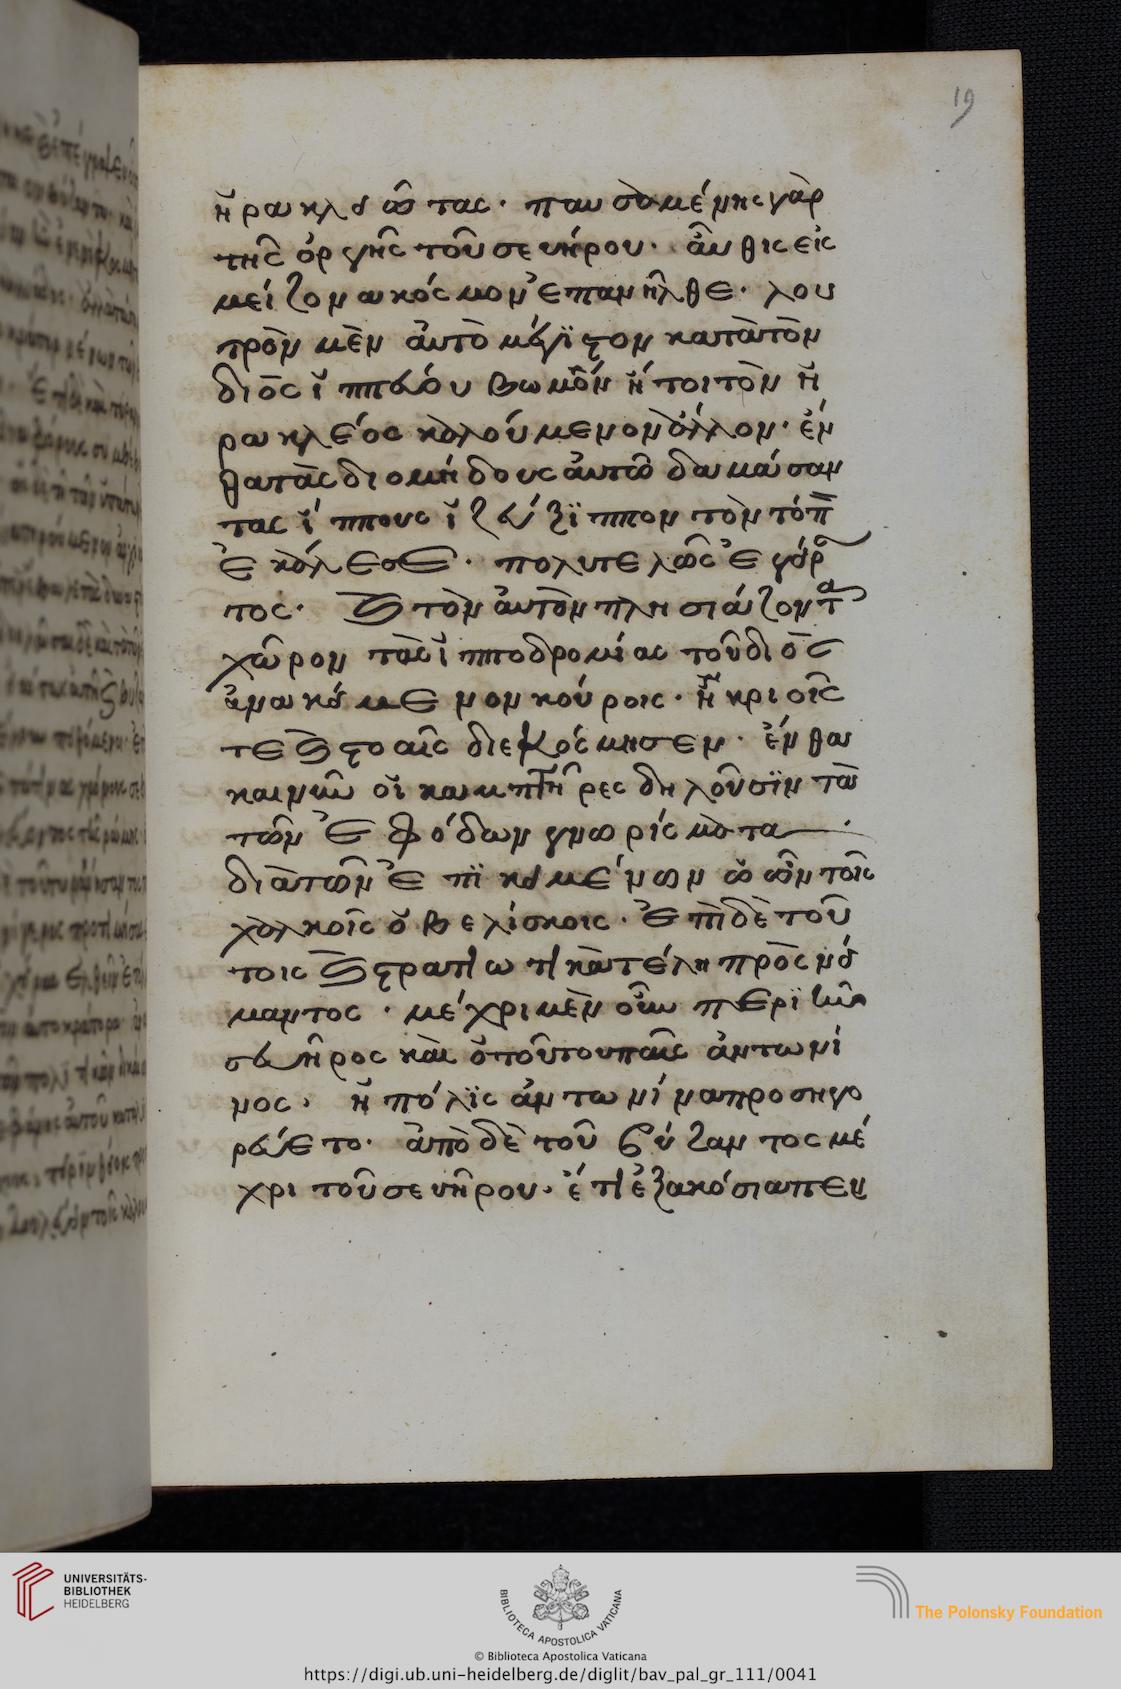 19
ἡρακλειώτας· παυσαμένης γὰρ
τῆς ὀργῆς τοῦ σευήρου· αὖθις εἰς
μείζονα κόσμον ἐπανῆλθε· λου
τρὸν μὲν αὐτὸ μέγιστον κατὰ τὸν
διὸς ἱππείου βωμὸν ἤτοι τὸν ἡ
ρακλέος καλούμενον ἄλλον· ἐν
θα τὰς διομήδους αὐτῶ δαμάσαν
τας ἵππους ἱζεύξιππον τὸν τόπ
ἐκάλεσε· πολυτελῶς ἐγείρ
τος· καὶ τὸν αὐτὸν πλησιάζοντα
χῶρον τὰς ἱπποδρομίας τοῦ διὸς
ἀνακείμενον κούροις· ἦν κρίοις
τε καὶ στοαῖς διεκόσμησεν· ἔνθα
καὶ νῦν οἱ καμπτῆρες δηλοῦσιν τὰ
τῶν ἐφόδων γνωρίσματα·
διὰ τῶν ἐπικειμένων ὠῶν τοῖς
χαλκοῖς ὀβελίσκοις· ἐπὶ δὲ τού
τοις καὶ στρατιωτικὰ τέλη πρὸς νεί
μαντος· μέχρι μὲν οὖν περιῆν
σευῆρος καὶ ὁ τούτου παῖς ἀντωνῖ
νος· ἡ πόλις ἀντωνίνα προσηγο
ρεύετο· ἀπὸ δὲ τοῦ βύζαντος μέ
χρι τοῦ σευήρου· ἔτι ἑξακόσια πεν
UNIVERSITÄTS-
BIBLIOTHEK
HEIDELBERG
BIBLIOTECA APOSTOLICA VATICANA
The Polonsky Foundation
© Biblioteca Apostolica Vaticana
https://digi.ub.uni-heidelberg.de/diglit/bav_pal_gr_111/0041